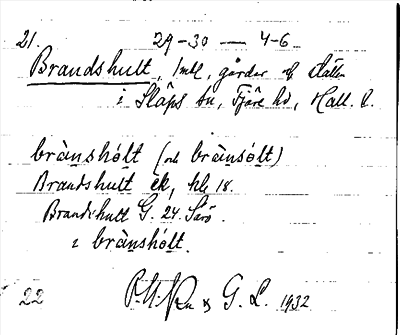 21. 29-30 — 4-6
Brandshult, 1 mtl, gårdar och slätten
i Släps sn, Fjäre hd, Hall. l.
brànshólt (och brànsólt)
Brandshult ek, hle 18.
Brandshult G. 24. Särö.
i brànshólt.
22 G. L. 1932